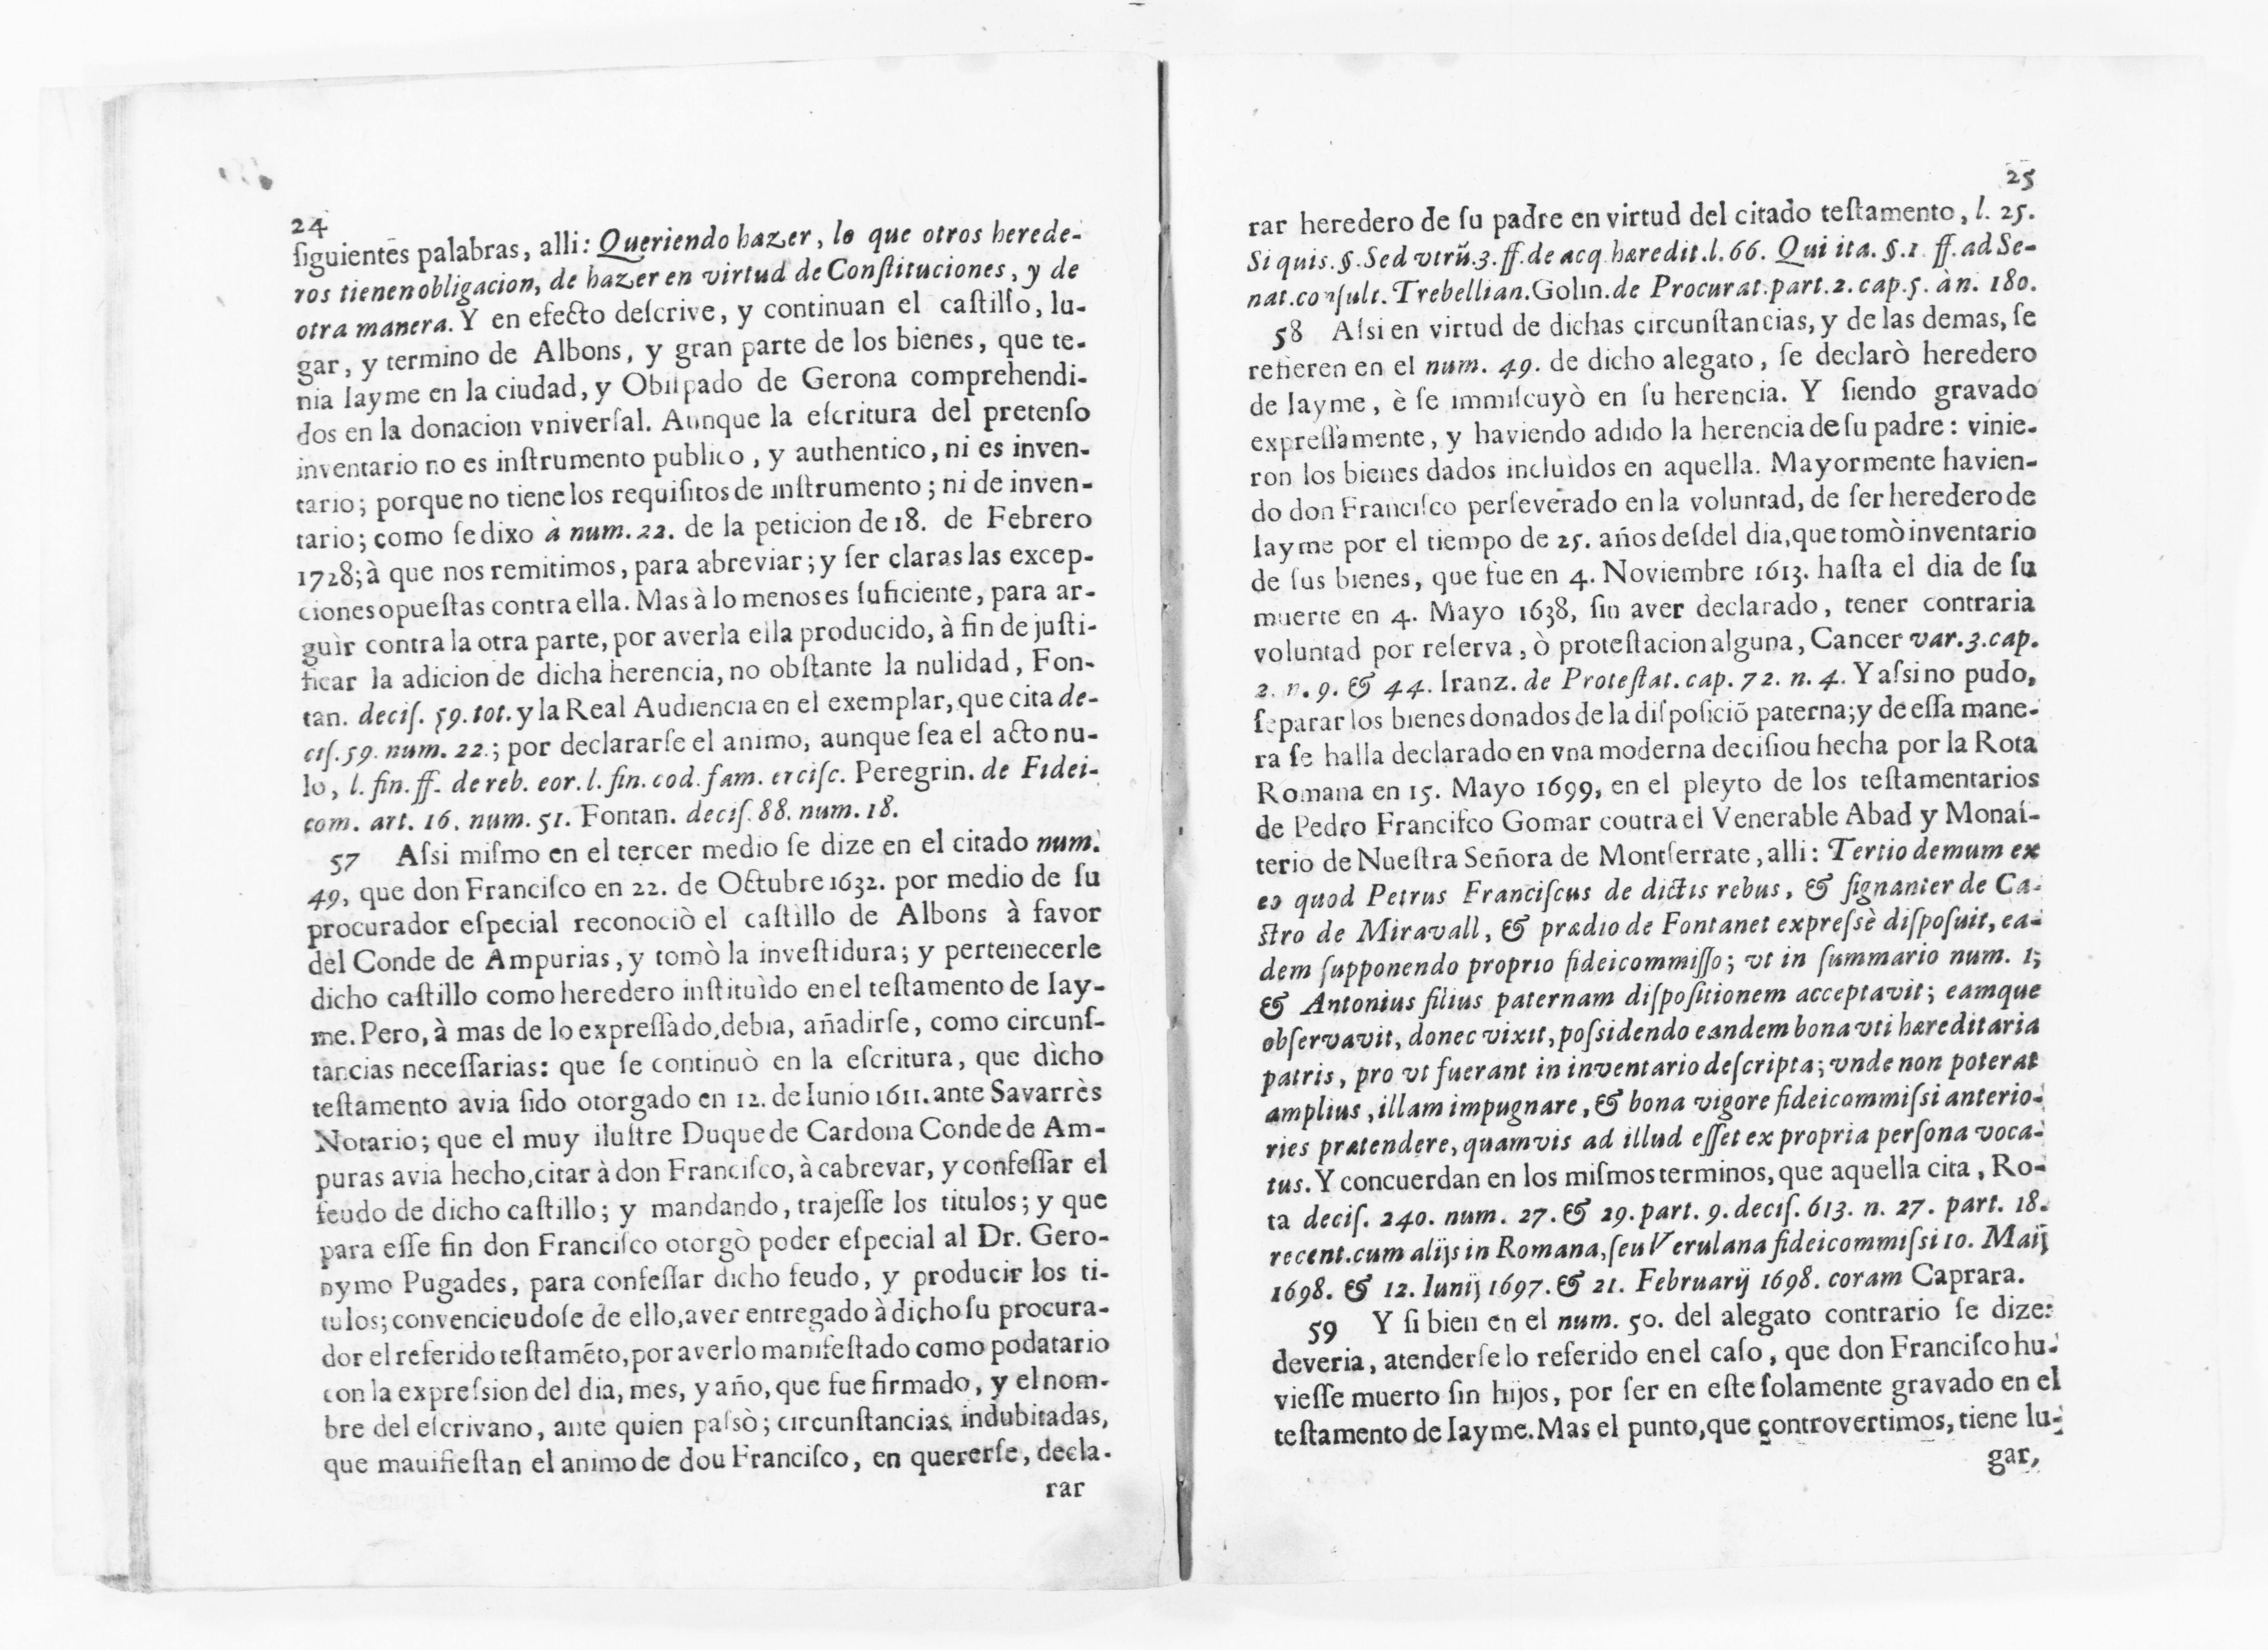 24
ſiguientes palabras, alli: Queriendo hazer, lo que otros herede-
ros tienen obligacion, de hazer en virtud de Conſtituciones, y de
otra manera. Y en efecto deſcrive, y continuan el caſtillo, lu-
gar, y termino de Albons, y gran parte de los bienes, que te-
nia Iayme en la ciudad, y Obiſpado de Gerona comprehendi-
dos en la donacion vniverſal. Aunque la eſcritura del pretenſo
inventario no es inſtrumento publico, y authentico, ni es inven-
tario; porque no tiene los requiſitos de inſtrumento; ni de inven-
tario; como ſe dixo à num. 22. de la peticion de 18. de Febrero
1728; à que nos remitimos, para abreviar; y ſer claras las excep-
ciones opueſtas contra ella. Mas à lo menos es ſuficiente, para ar-
guìr contra la otra parte, por averla ella producido, à fin de juſti-
ficar la adicion de dicha herencia, no obſtante la nulidad, Fon-
tan. deciſ. 59. tot. y la Real Audiencia en el exemplar, que cita de-
ciſ. 59. num. 22.; por declararſe el animo, aunque ſea el acto nu-
lo, l. fin. ff. de reb. eor. l. fin. cod. fam. erciſc. Peregrin. de Fidei-
com. art. 16. num. 51. Fontan. deciſ. 88. num. 18.
57 Aſsi miſmo en el tercer medio ſe dize en el citado num.
49, que don Franciſco en 22. de Octubre 1632. por medio de ſu
procurador eſpecial reconociò el caſtillo de Albons à favor
del Conde de Ampurias, y tomò la inveſtidura; y pertenecerle
dicho caſtillo como heredero inſtituìdo en el teſtamento de Iay-
me. Pero, à mas de lo expreſſado, debia, añadirſe, como circunſ-
tancias neceſſarias: que ſe continuò en la eſcritura, que dicho
teſtamento avia ſido otorgado en 12. de Iunio 1611. ante Savarrès
Notario; que el muy iluſtre Duque de Cardona Conde de Am-
puras avia hecho, citar à don Franciſco, à cabrevar, y confeſſar el
feudo de dicho caſtillo; y mandando, trajeſſe los titulos; y que
para eſſe fin don Franciſco otorgò poder eſpecial al Dr. Gero-
nymo Pugades, para confeſſar dicho feudo, y producir los ti-
tulos; convencieudoſe de ello, aver entregado à dicho ſu procura-
dor el referido teſtamẽto, por averlo manifeſtado como podatario
con la expreſsion del dia, mes, y año, que fue firmado, y el nom-
bre del eſcrivano, ante quien paſsò; circunſtancias indubitadas,
que mauifieſtan el animo de dou Franciſco, en quererſe, decla-
rar
25
rar heredero de ſu padre en virtud del citado teſtamento, l. 25.
Si quis. §. Sed vtrũ. 3. ff. de acq. hæredit. l. 66. Qui ita. §. 1. ff. ad Se-
nat. conſult. Trebellian. Golin. de Procurat. part. 2. cap. 5. àn. 180.
58 Aſsi en virtud de dichas circunſtancias, y de las demas, ſe
refieren en el num. 49. de dicho alegato, ſe declarò heredero
de Iayme, è ſe immiſcuyò en ſu herencia. Y ſiendo gravado
expreſſamente, y haviendo adido la herencia de ſu padre: vinie-
ron los bienes dados incluìdos en aquella. Mayormente havien-
do don Franciſco perſeverado en la voluntad, de ſer heredero de
Iayme por el tiempo de 25. años deſdel dia, que tomò inventario
de ſus bienes, que fue en 4. Noviembre 1613. haſta el dia de ſu
muerte en 4. Mayo 1638, ſin aver declarado, tener contraria
voluntad por reſerva, ò proteſtacion alguna, Cancer var. 3. cap.
2. n. 9. & 44. Iranz. de Proteſtat. cap. 72. n. 4. Y aſsi no pudo,
ſeparar los bienes donados de la diſpoſiciõ paterna; y de eſſa mane-
ra ſe halla declarado en vna moderna deciſiou hecha por la Rota
Romana en 15. Mayo 1699, en el pleyto de los teſtamentarios
de Pedro Franciſco Gomar coutra el Venerable Abad y Monaſ-
terio de Nueſtra Señora de Montſerrate, alli: Tertio demum ex
eo quod Petrus Franciſcus de dictis rebus, & ſignanter de Ca-
ſtro de Miravall, & prædio de Fontanet expreſsè diſpoſuit, ea-
dem ſupponendo proprio fideicommiſſo; vt in ſummario num. 1;
& Antonius filius paternam diſpoſitionem acceptavit; eamque
obſervavit, donec vixit, poſsidendo eandem bona vti hæreditaria
patris, pro vt fuerant in inventario deſcripta; vnde non poterat
amplius, illam impugnare, & bona vigore fideicommiſsi anterio-
ries prætendere, quamvis ad illud eſſet ex propria perſona voca-
tus. Y concuerdan en los miſmos terminos, que aquella cita, Ro-
ta deciſ. 240. num. 27. & 29. part. 9. deciſ. 613. n. 27. part. 18.
recent. cum alijs in Romana, ſeu Verulana fideicommiſsi 10. Maij
1698. & 12. Iunij 1697. & 21. Februarij 1698. coram Caprara.
59 Y ſi bien en el num. 50. del alegato contrario ſe dize:
deveria, atenderſe lo referido en el caſo, que don Franciſco hu-
vieſſe muerto ſin hijos, por ſer en eſte ſolamente gravado en el
teſtamento de Iayme. Mas el punto, que controvertimos, tiene lu-
gar,